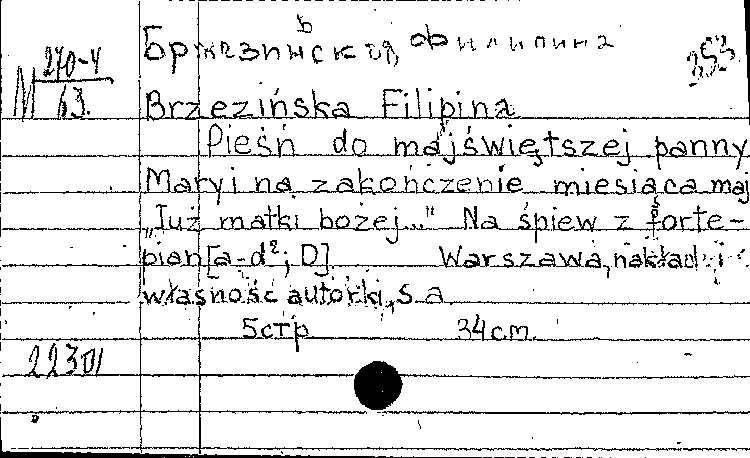 Бржезинская, Филипина
353
M 270-4
63.
Brzezińska Filipina
Pieśń do najświętszej panny
Maryi na zakończenie miesiąca maj
„Już matki bożej..." Na śpiew z forte-
pian [a-d²; D] Warszawa, nakład i
własność autorki, s.a.
5стр 34cm.